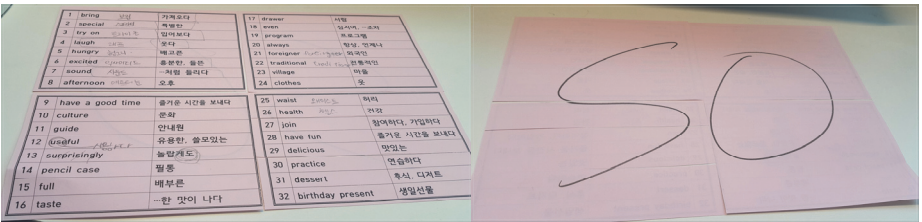 1 bring 가져오다
2 special 특별한
3 try on 입어보다
4 laugh 웃다
5 hungry 배고픈
6 excited 흥분한, 들뜬
7 sound ~처럼 들리다
8 afternoon 오후
9 have a good time 즐거운 시간을 보내다
10 culture 문화
11 guide 안내원
12 useful 유용한, 쓸모있는
13 surprisingly 놀랍게도
14 pencil case 필통
15 full 배부른
16 taste ~한 맛이 나다
17 drawer 서랍
18 even 심지어, ~조차
19 program 프로그램
20 always 항상, 언제나
21 foreigner 외국인
22 traditional 전통적인
23 village 마을
24 clothes 옷
25 waist 허리
26 health 건강
27 join 참여하다, 가입하다
28 have fun 즐거운 시간을 보내다
29 delicious 맛있는
30 practice 연습하다
31 dessert 후식, 디저트
32 birthday present 생일선물
SO